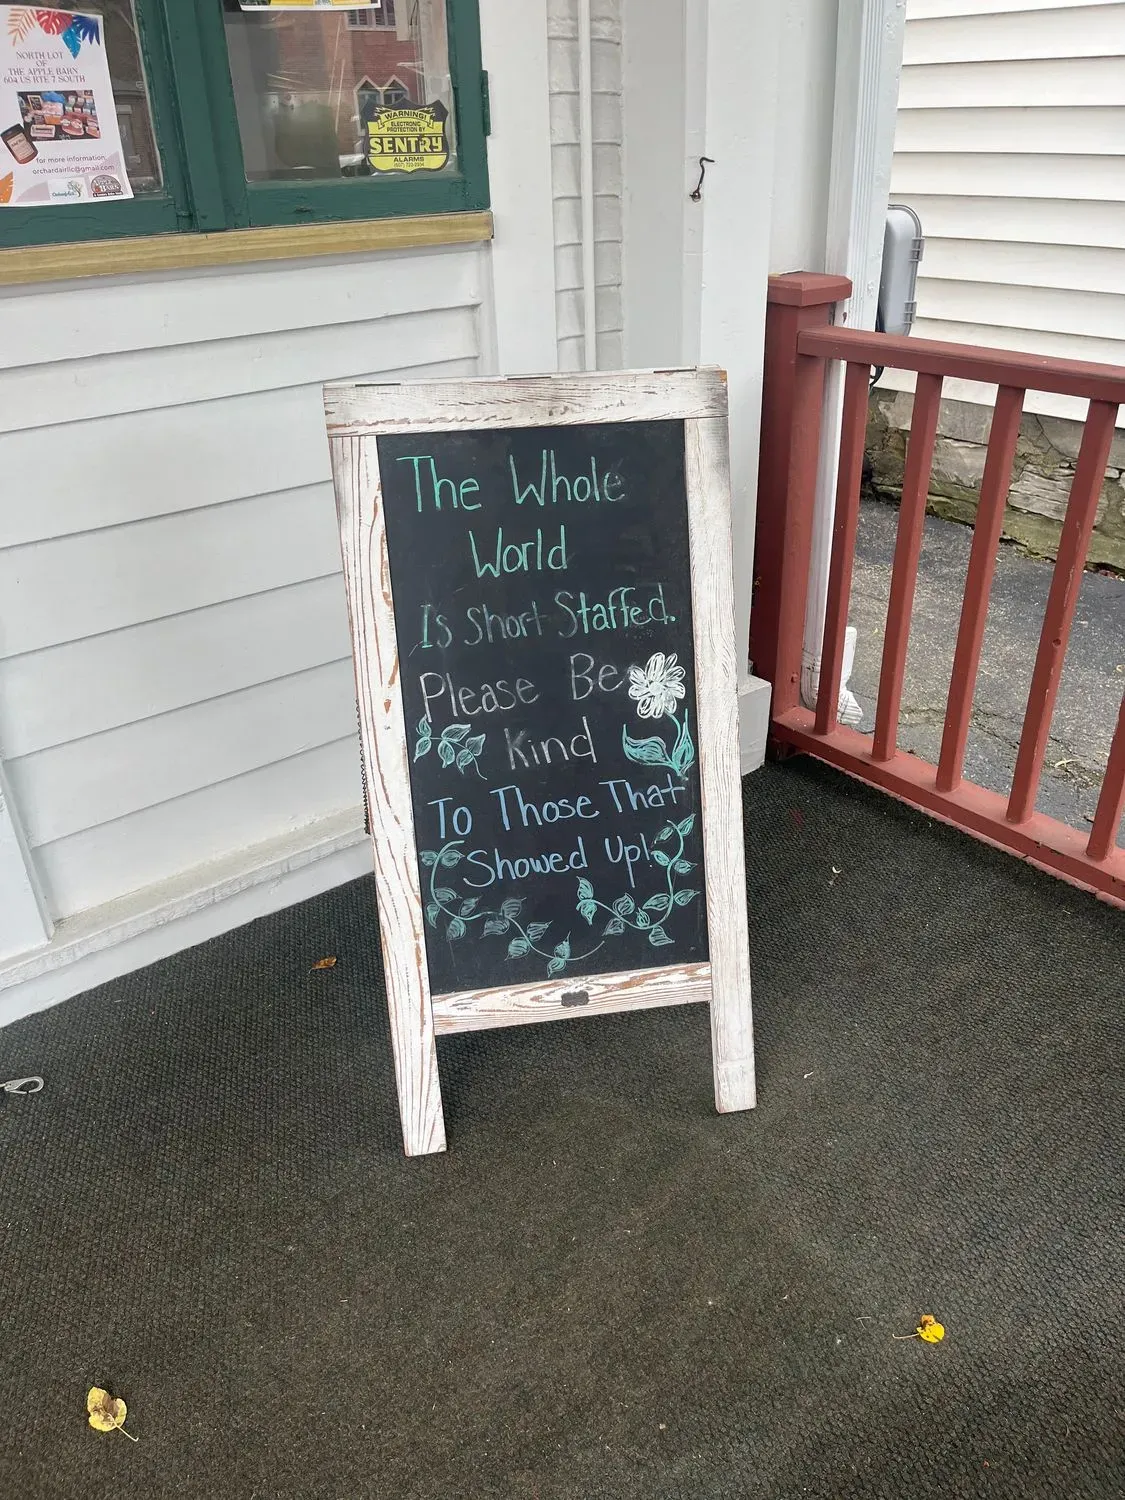 NORTH LOT
OF
THE APPLE BARN
604 US RTE 7 SOUTH
for more information:
orchardairllc@gmail.com
WARNING!
ELECTRONIC
PROTECTION BY
SENTRY
ALARMS
The Whole
World
Is Short Staffed.
Please Be
Kind
To Those That
Showed Up!